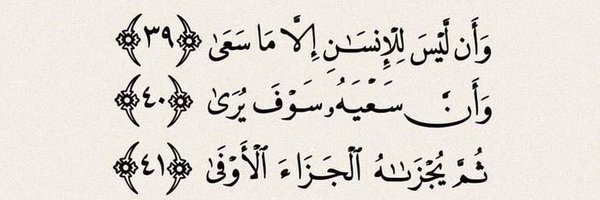 وَأَن لَّيْسَ لِلْإِنسَـٰنِ إِلَّا مَا سَعَىٰ ﴿٣٩﴾
وَأَنَّ سَعْيَهُۥ سَوْفَ يُرَىٰ ﴿٤٠﴾
ثُمَّ يُجْزَىٰهُ ٱلْجَزَآءَ ٱلْأَوْفَىٰ ﴿٤١﴾